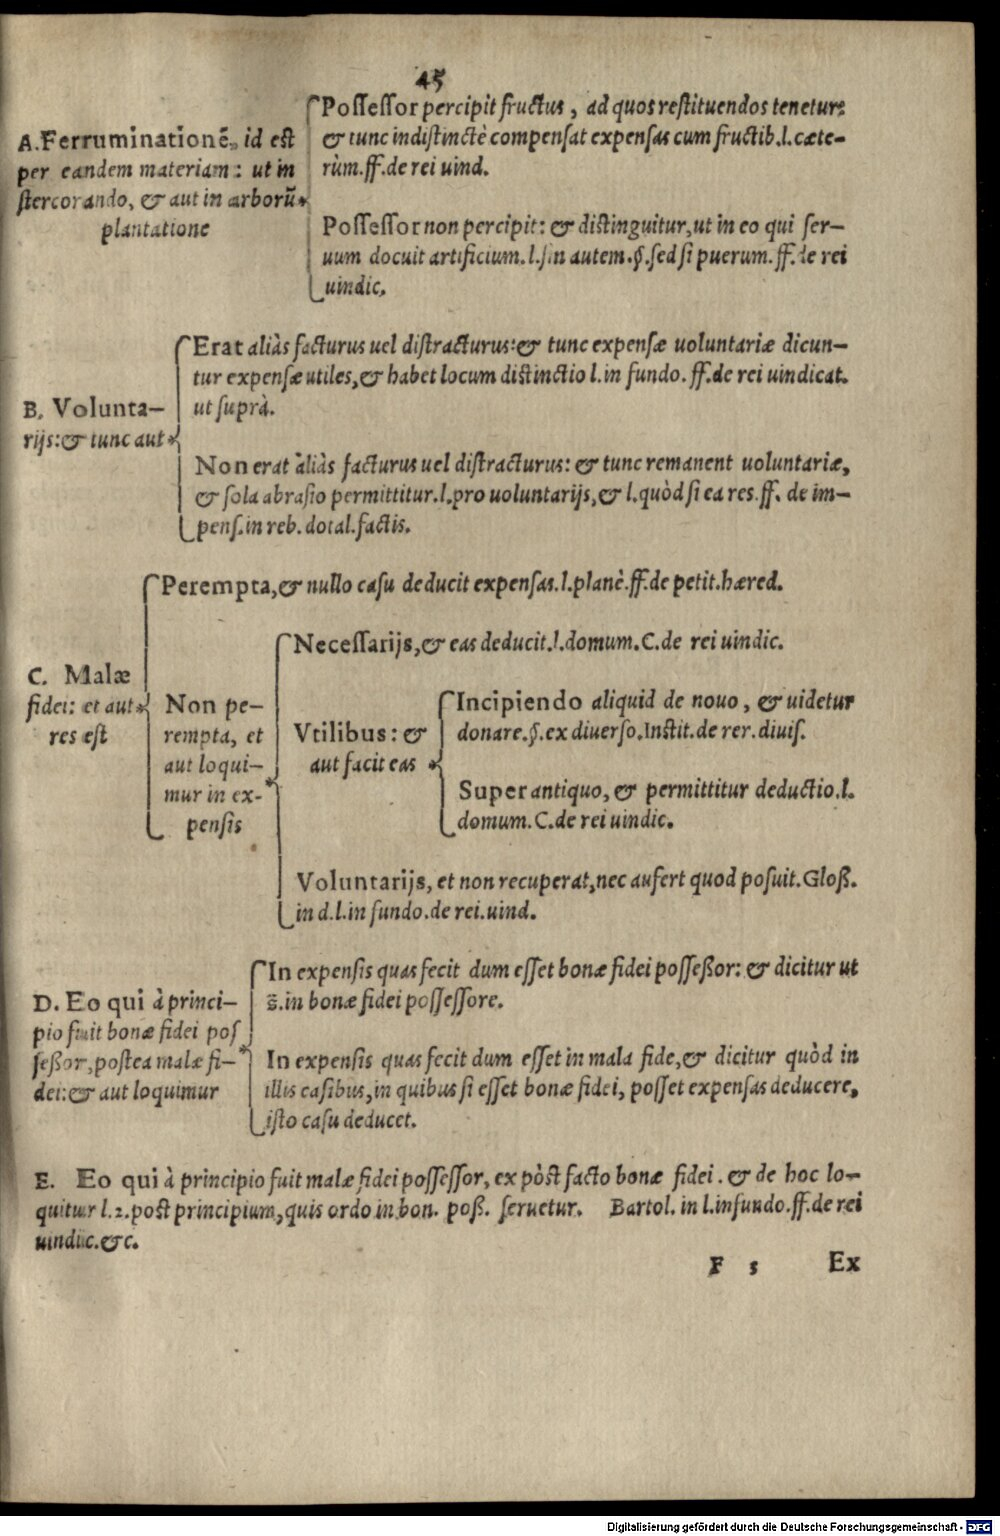 45
A. Ferruminationē, id est
per eandem materiam: ut in
stercorando, & aut in arborū
plantatione
Possessor percipit fructus, ad quos restituendos tenetur:
& tunc indistinctè compensat expensas cum fructib. l. cæte-
rùm. ff. de rei uind.
Possessor non percipit: & distinguitur, ut in eo qui ser-
uum docuit artificium. l. sin autem. §. sed si puerum. ff. de rei
uindic.
B. Volunta-
rijs: & tunc aut
Erat aliàs facturus uel distracturus: & tunc expensæ uoluntariæ dicun-
tur expensæ utiles, & habet locum distinctio l. in fundo. ff. de rei uindicat.
ut suprà.
Non erat aliàs facturus uel distracturus: & tunc remanent uoluntariæ,
& sola abrasio permittitur. l. pro uoluntarijs, & l. quòd si ea res. ff. de im-
pens. in reb. dotal. factis.
C. Malæ
fidei: et aut
res est
Perempta, & nullo casu deducit expensas. l. planè. ff. de petit. hæred.
Non pe-
rempta, et
aut loqui-
mur in ex-
pensis
Necessarijs, & eas deducit. l. domum. C. de rei uindic.
Vtilibus: &
aut facit eas
Incipiendo aliquid de nouo, & uidetur
donare. §. ex diuerso. Instit. de rer. diuis.
Super antiquo, & permittitur deductio. l.
domum. C. de rei uindic.
Voluntarijs, et non recuperat, nec aufert quod posuit. Gloß.
in d. l. in fundo. de rei. uind.
D. Eo qui à princi-
pio fuit bonæ fidei pos
seßor, postea malæ fi-
dei: & aut loquimur
In expensis quas fecit dum esset bonæ fidei posseßor: & dicitur ut
s̄. in bonæ fidei possessore.
In expensis quas fecit dum esset in mala fide, & dicitur quòd in
illis casibus, in quibus si esset bonæ fidei, posset expensas deducere,
isto casu deducet.
E. Eo qui à principio fuit malæ fidei possessor, ex pòst facto bonæ fidei. & de hoc lo-
quitur l. 2. post principium, quis ordo in bon. poß. seruetur. Bartol. in l. in fundo. ff. de rei
uindic. &c.
F 5 Ex
Digitalisierung gefördert durch die Deutsche Forschungsgemeinschaft - DFG